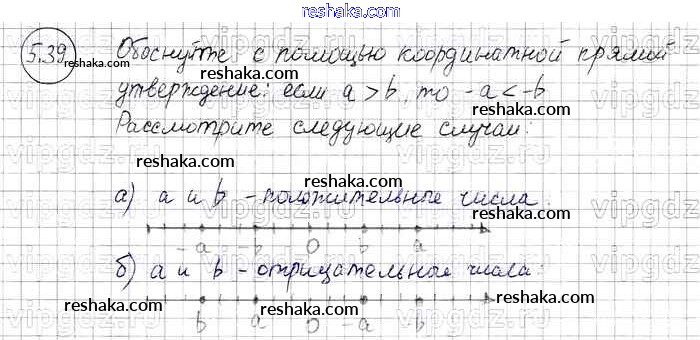 reshaka.com
5.39 Обоснуйте с помощью координатной прямой
reshaka.com
утверждение: если a > b, то -a < -b
reshaka.com reshaka.com
Рассмотрите следующие случаи:
reshaka.com reshaka.com
а) a и b - положительные числа.
reshaka.com reshaka.com
-a -b 0 b a
б) a и b - отрицательные числа:
reshaka.com reshaka.com
b a 0 -a -b
reshaka.com
vipgdz.ru